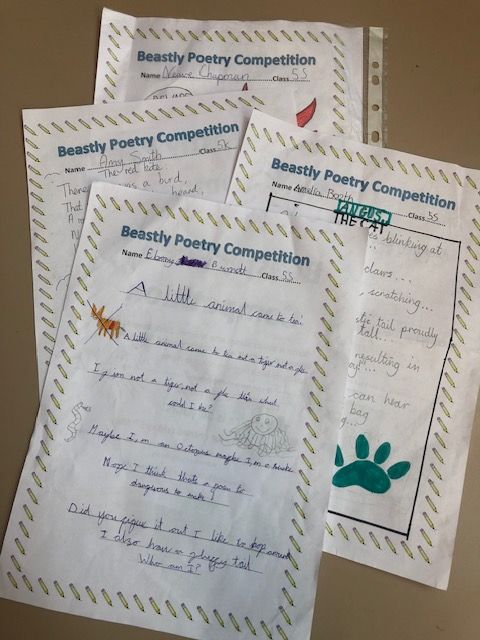 Beastly Poetry Competition
Name Neave Chapman Class 5S
Beastly Poetry Competition
Name Amy Smith Class 5K
The red kite
There was a bird,
heard,
That
A
Beastly Poetry Competition
Name Amelia Booth Class 5S
ANGUS
THE CAT
blinking at
claws...
scratching...
tail proudly
tall...
resulting in
can hear
bag
Beastly Poetry Competition
Name Ebony Burnett Class 5S
A little animal came to tea!
A little animal came to tea not a tiger not a
I'm not a tiger, not a then what
could I be?
Maybe I,m an Octopus maybe I,m a snake
Nope I think thats a poem to
dangerous to make
Did you figure it out I like to hop around
I also have a tail
Who am I?